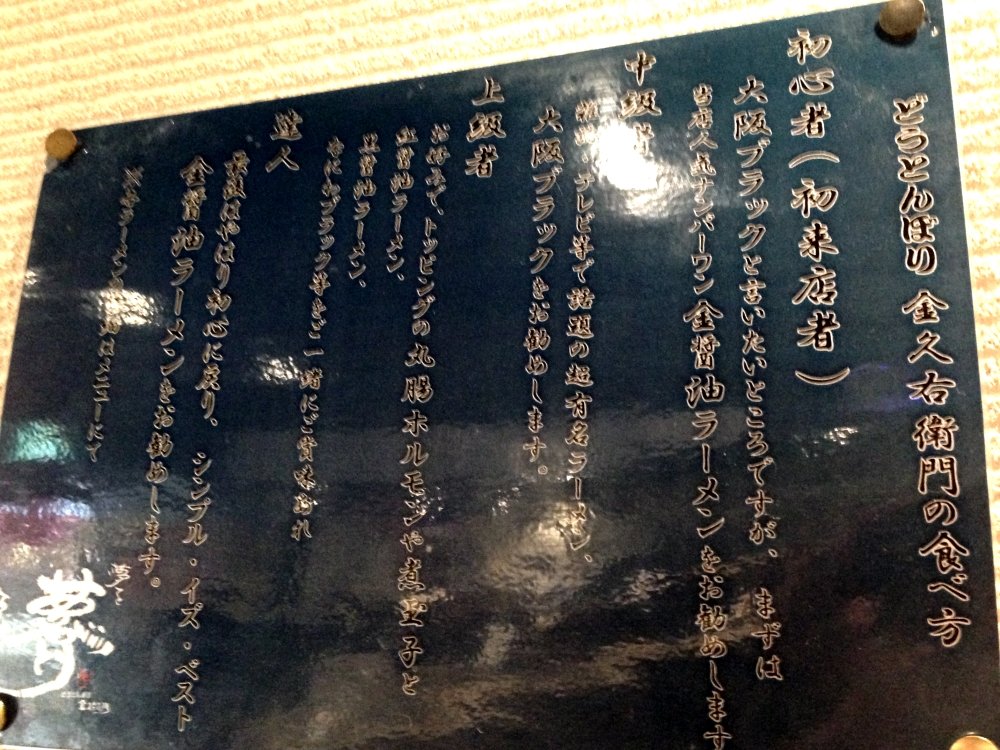 どうとんぼり 金久右衛門の食べ方
初心者(初来店者)
大阪ブラックと言いたいところですが、まずは
当店人気ナンバーワン金醤油ラーメンをお勧めします
中級者
雑誌・テレビ等で話題の超有名ラーメン、
大阪ブラックをお勧めします。
上級者
お好みで、トッピングの丸腸ホルモンや煮玉子と
醤油ラーメン、
醤油ラーメン、
ブラック等をご一緒にご賞味あれ
達人
最後はやはり初心に戻り、シンプル・イズ・ベスト
金醤油ラーメンをお勧めします。
※各ラーメンの はメニューにて